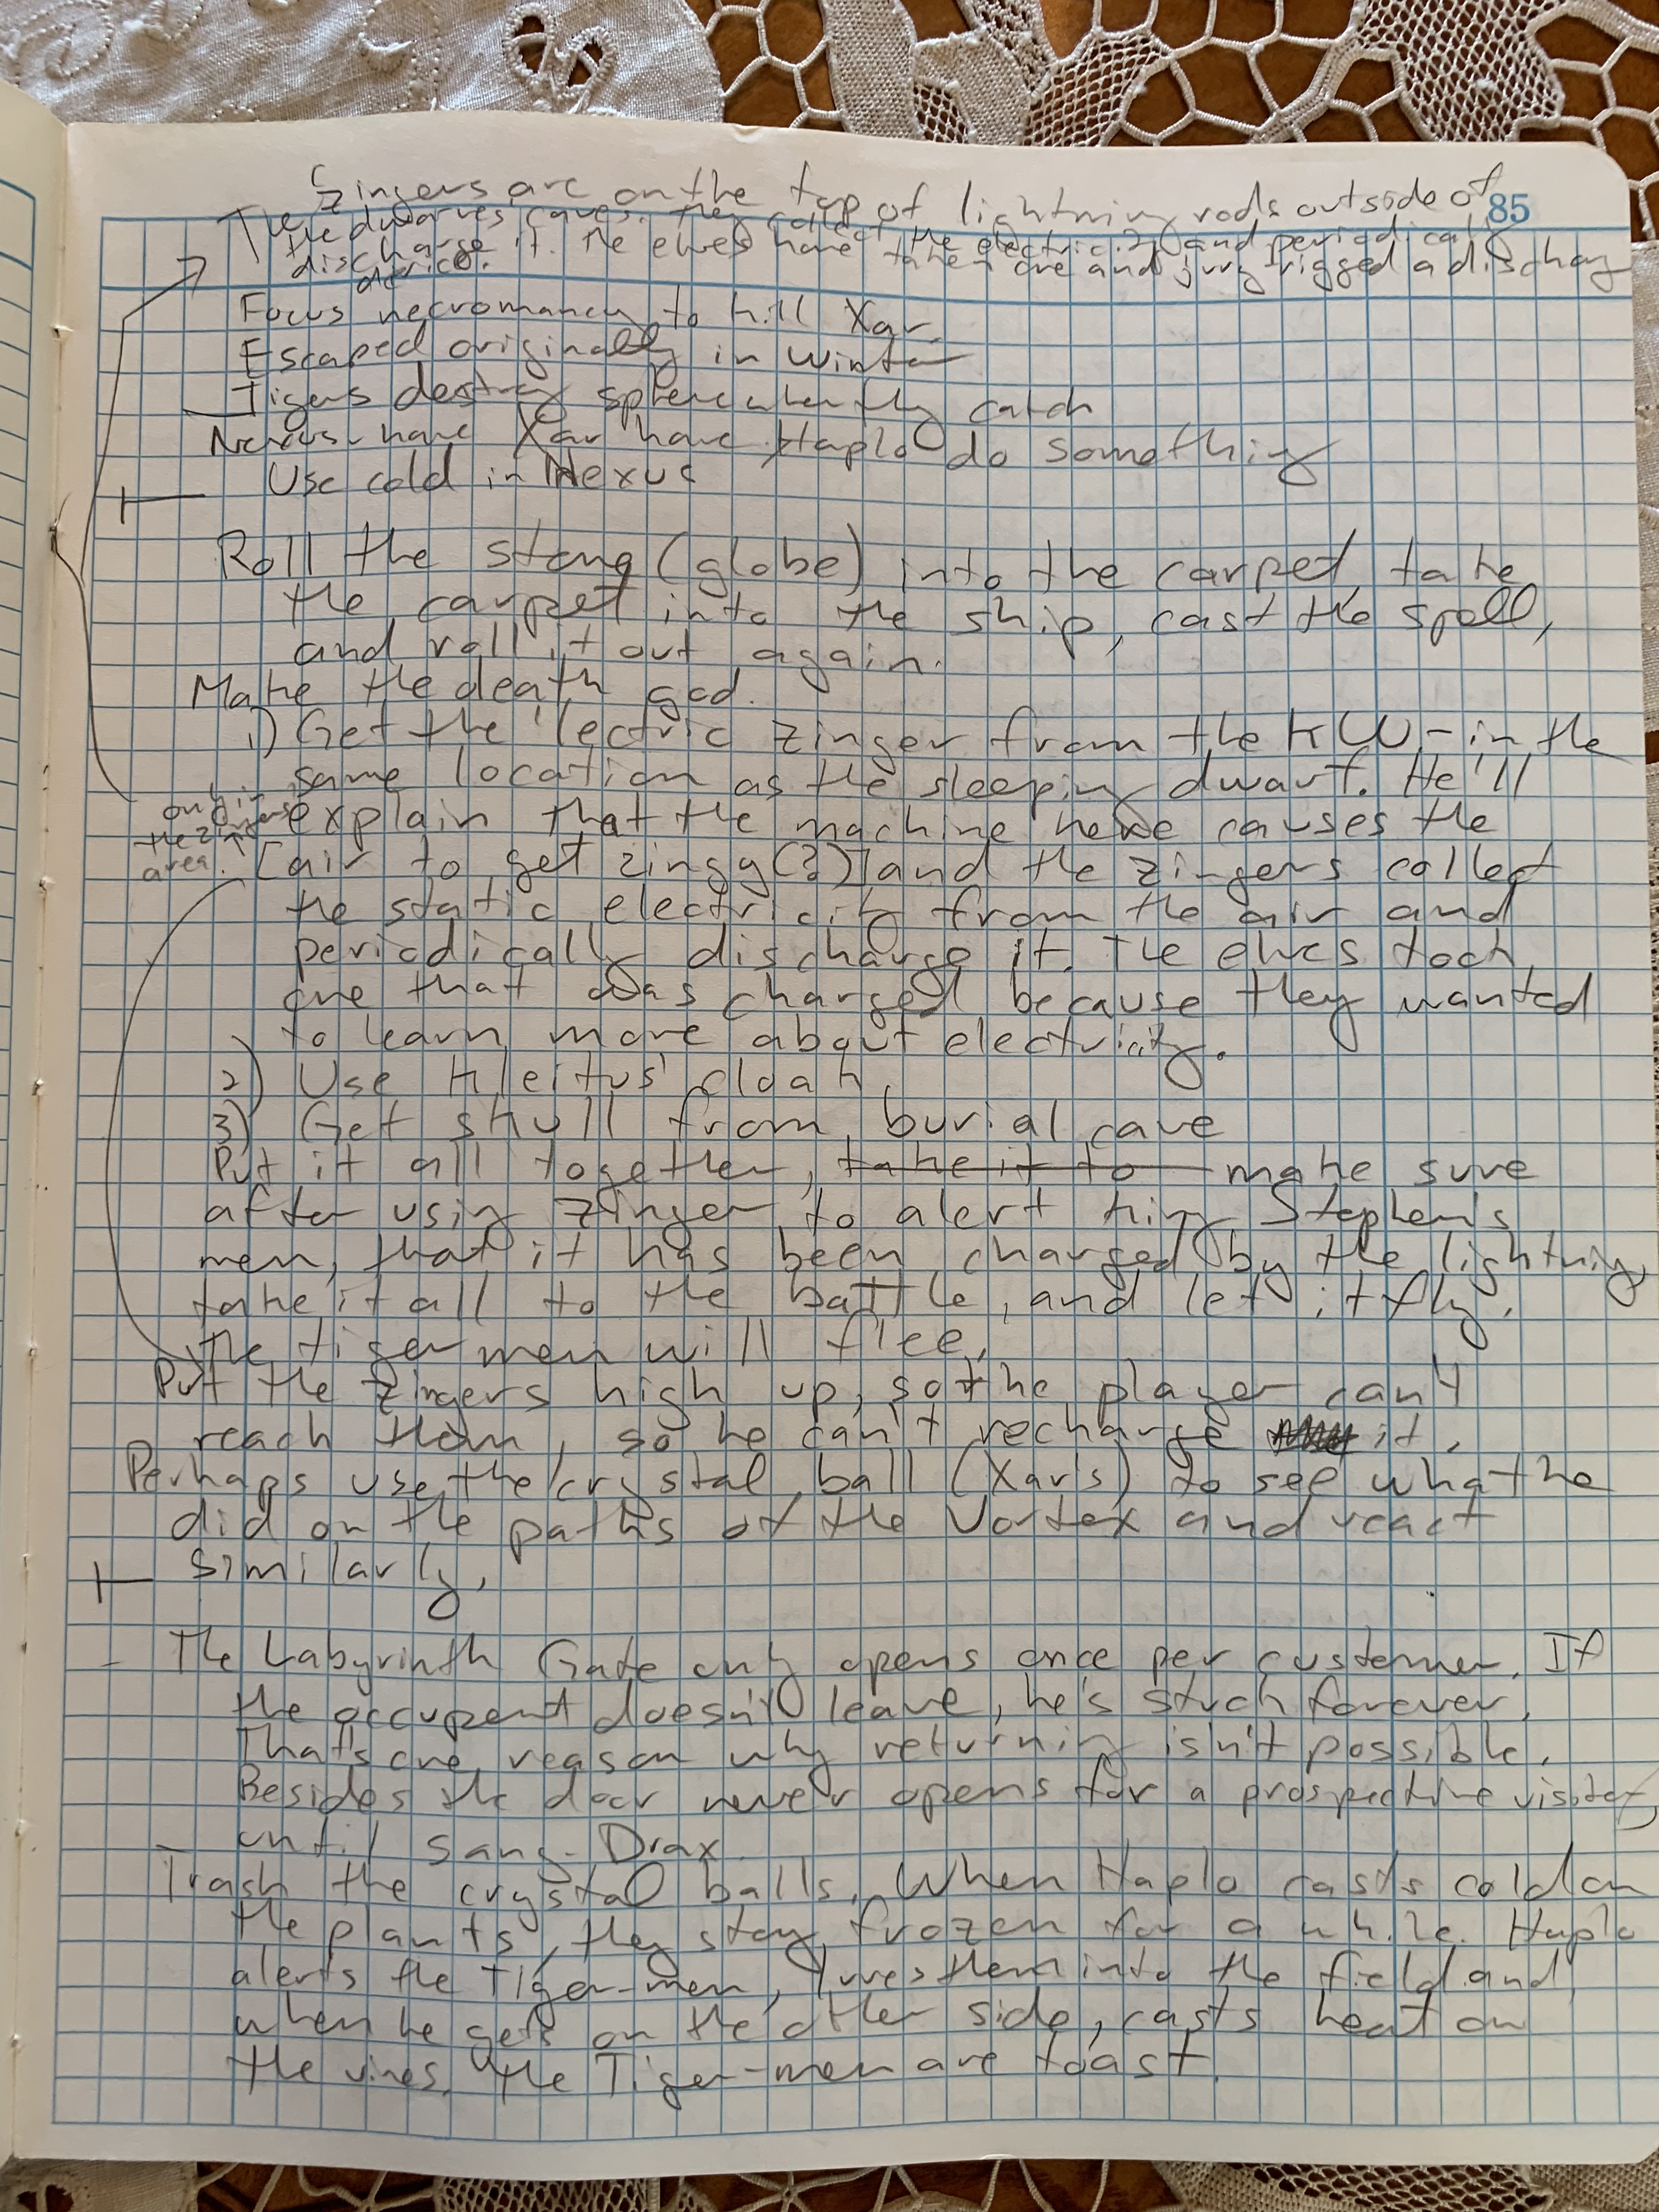 Zingers are on the top of lightning rods outside of
85
The dwarves caves. They collect the electricity and periodically
discharge it. The elves have taken one and jury rigged a discharg
device.
Focus necromancy to kill Xar
Escaped originally in winter
Tigers destroy sphere when they catch
Nexus - have Xar have Haplo do something
Use cold in Nexus
Roll the stone (globe) into the carpet, take
the carpet into the ship, cast the spell,
and roll it out again.
Make the death god.
1) Get the 'lectric zinger from the KW - in the
same location as the sleeping dwarf. He'll
only in
the zingers
area.
explain that the machine here causes the
[air to get zingy(?)] and the zingers collect
the static electricity from the air and
periodically discharge it. The elves took
one that was charged because they wanted
to learn more about electricity.
2) Use Kleitus' cloak
3) Get skull from burial cave
Put it all together, take it to make sure
after using zinger to alert king Stephen's
men, that it has been charged by the lightning,
take it all to the battle, and let it fly.
The tiger men will flee.
Put the zingers high up, so the player can't
reach them, so he can't recharge it.
Perhaps use the crystal ball (Xar's) to see what he
did on the paths of the Vortex and react
similarly.
- The Labyrinth Gate only opens once per customer. If
the occupent doesn't leave, he's stuck forever.
That's one reason why returning isn't possible.
Besides the door never opens for a prospective visitor,
until Sang-Drax.
Trash the crystal balls. When Haplo casts cold on
the plants, they stay frozen for a while. Haplo
alerts the Tiger-men, lures them into the field and
when he gets on the other side, casts heat on
the vines. The Tiger-men are toast.